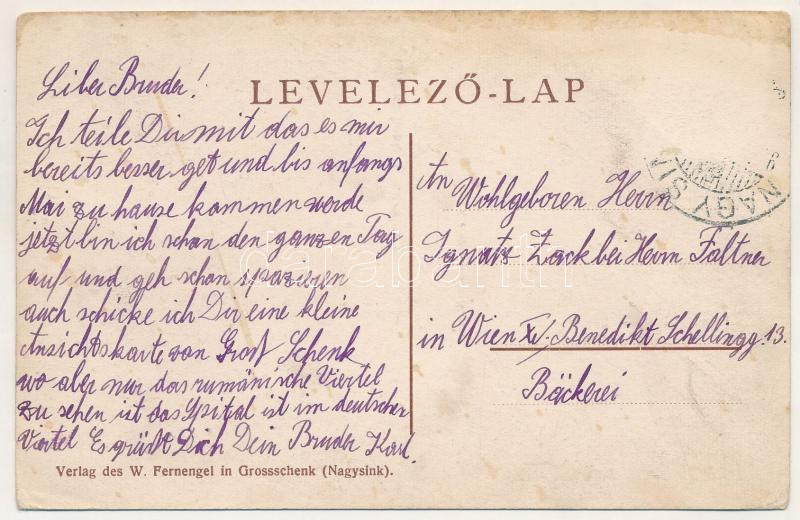 LEVELEZŐ-LAP
Liber Bruder!
Ich teile Dir mit das es mir
bereits besser get und bis anfangs
Mai zu hause kommen werde
jetzt bin ich schon den ganzen Tag
auf und geh schon spazieren
auch schicke ich Dir eine kleine
Ansichtskarte von Groß Schenk
wo aber nur das rumänische Viertel
zu sehen ist das Spital ist im deutschen
Viertel Es grüßt Dich Dein Bruder Karl.
Verlag des W. Fernengel in Grossschenk (Nagysink).
NAGYSI
An Wohlgeboren Herrn
Ignatz Zack bei Herrn Faltner
in Wien XV. Benedikt Schellingg. 13.
Bäckerei
darabanth